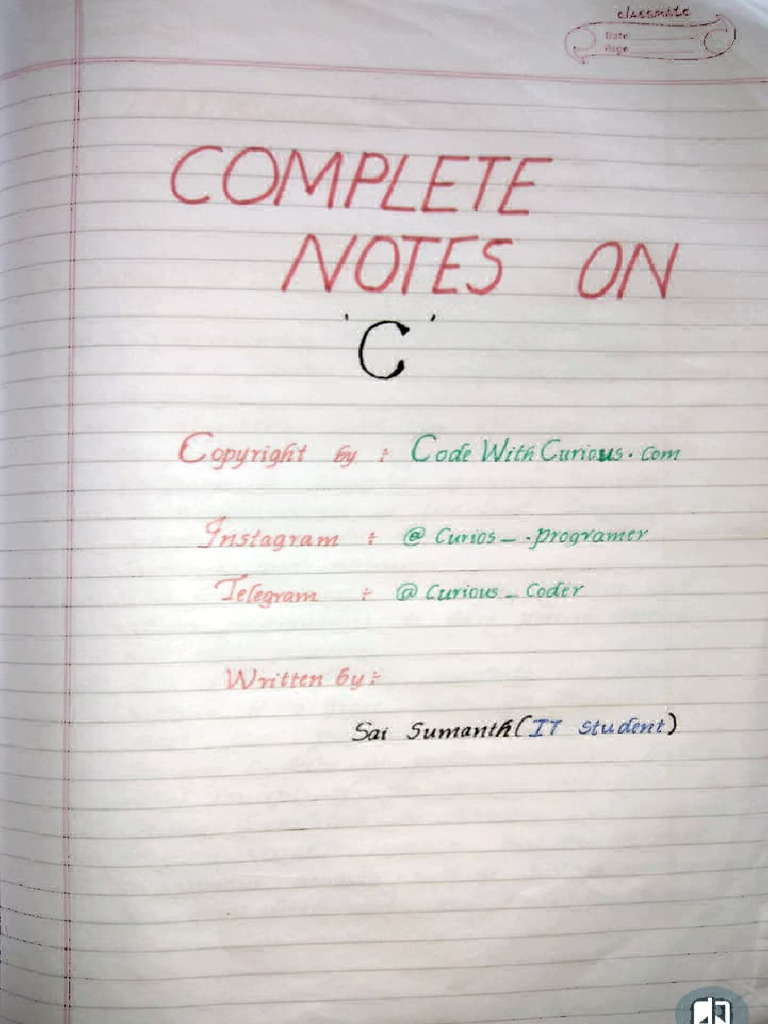 classmate
Date
Page
COMPLETE
NOTES ON
'C'
Copyright by : Code With Curious. com
Instagram : @ Curios_.programer
Telegram : @ Curious_Coder
Written by :-
Sai Sumanth (IT Student)